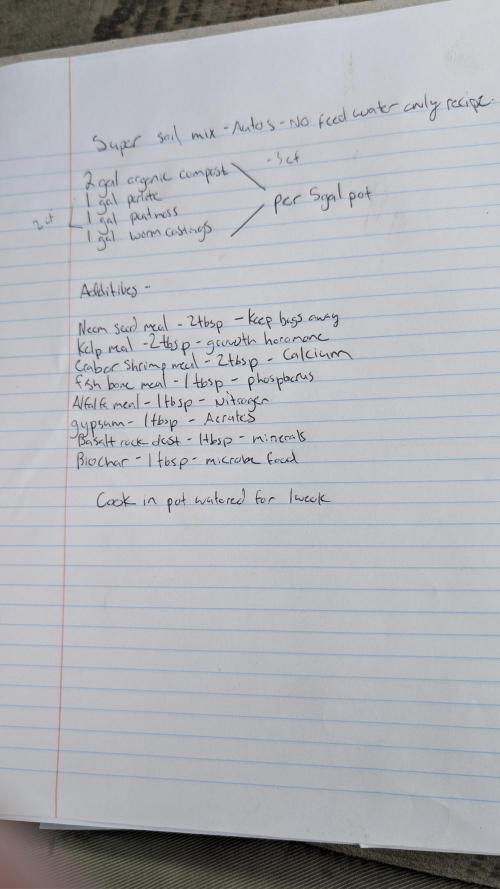 Super soil mix - Autos - No feed water only recipe.
2 gal organic compost
1 gal perlite
1 gal peatmoss
1 gal worm castings
2 cf
- 3 cf
per 5gal pot
Additives -
Neem seed meal - 2tbsp - keep bugs away
Kelp meal - 2tbsp - growth horomone
Crab or Shrimp meal - 2tbsp - Calcium
fish bone meal - 1 tbsp - phosphorus
Alfalfa meal - 1tbsp - Nitrogen
gypsum - 1tbsp - Aerates
Basalt rock dust - 1tbsp - minerals
Biochar - 1 tbsp - microbe food
Cook in pot watered for 1 week